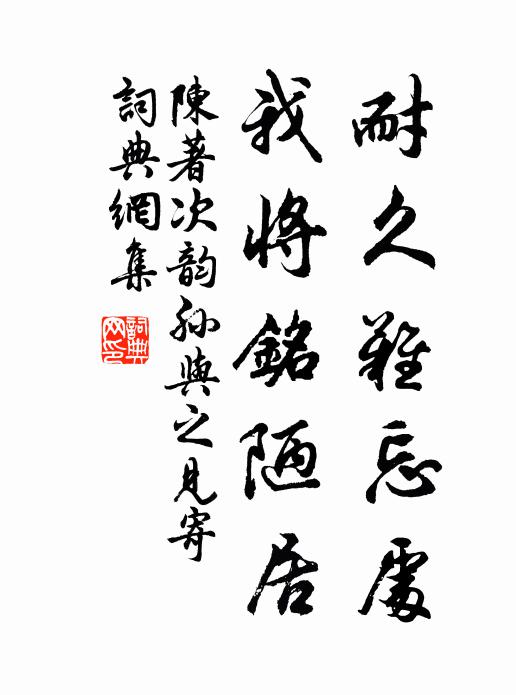 耐久難忘處
我將銘陋居
陳著次韵孫與之見寄
詞典網集
詞典網印